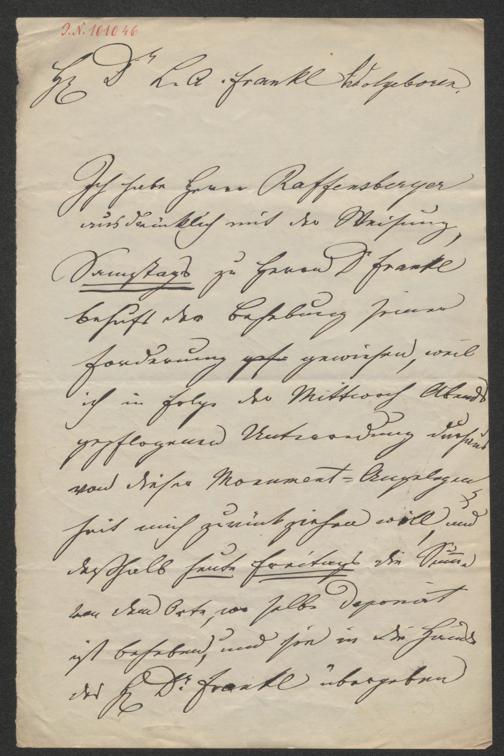 J.N. 101046
Hr Dr L. A. Frankl Wolgeboren.
Ich habe Herrn Raffensberger
ausdrücklich mit der Weisung,
Samstags zu Herrn Dr Frankl
behufs der Behebung seiner
Forderung gewiesen, weil
ich in Folge der Mittwoch Abends
gepflogenen Unterredung durchaus
von dieser Monument=Angelegen
heit mich zurückziehen will, und
deßhalb heute Freitags die Summe
von dem Orte, wo selbe deponirt
ist beheben, und sie in die Hände
des Hr Dr Frankl übergeben